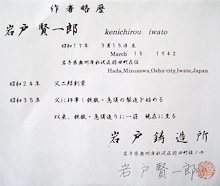 作者略歴
岩戸賢一郎 kenichirou iwato
昭和17年 3月15日生
March 15 1942
岩手県奥州市水沢区羽田町
Hada,Mizusawa,Oshu-city,Iwate,Japan
昭和24年 父二郎創業
昭和35年 父に師事し鉄瓶・急須の製造を始める
以来、鉄瓶・急須造りに一筋 現在に至る
岩戸鋳造所
岩手県奥州市水沢区羽田町
岩戸賢一郎